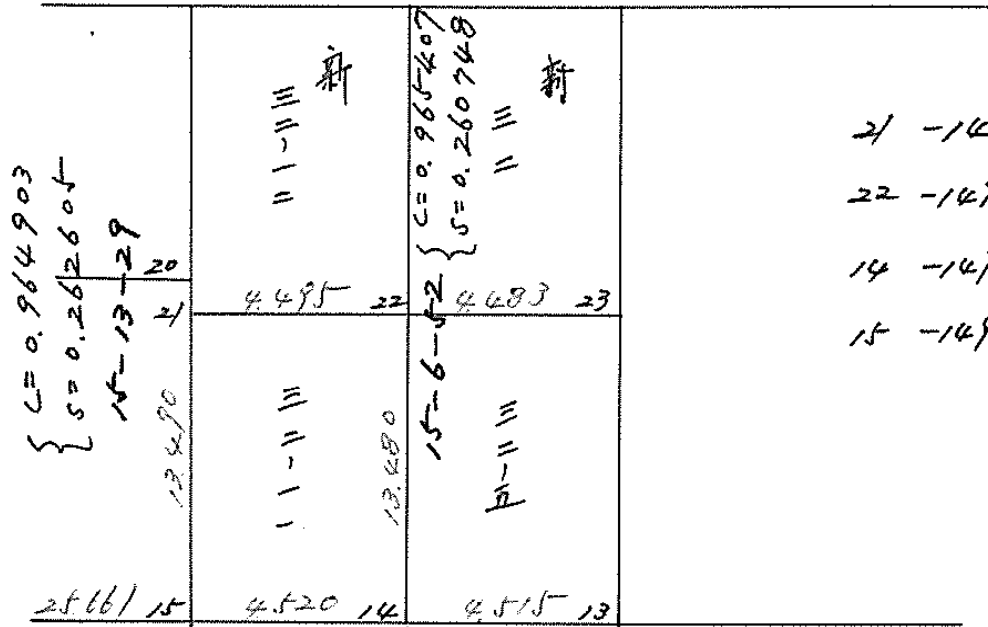 C=0.964903
S=0.262605
15-13-29
20
21
13.490
25.661 15
新
三二-一二
4.495 22
三二-一一
13.480
4.520 14
C=0.965407
S=0.260748
15-6-52
新
三二
4.483 23
三二-
4.515 13
21 -14
22 -14
14 -14
15 -149